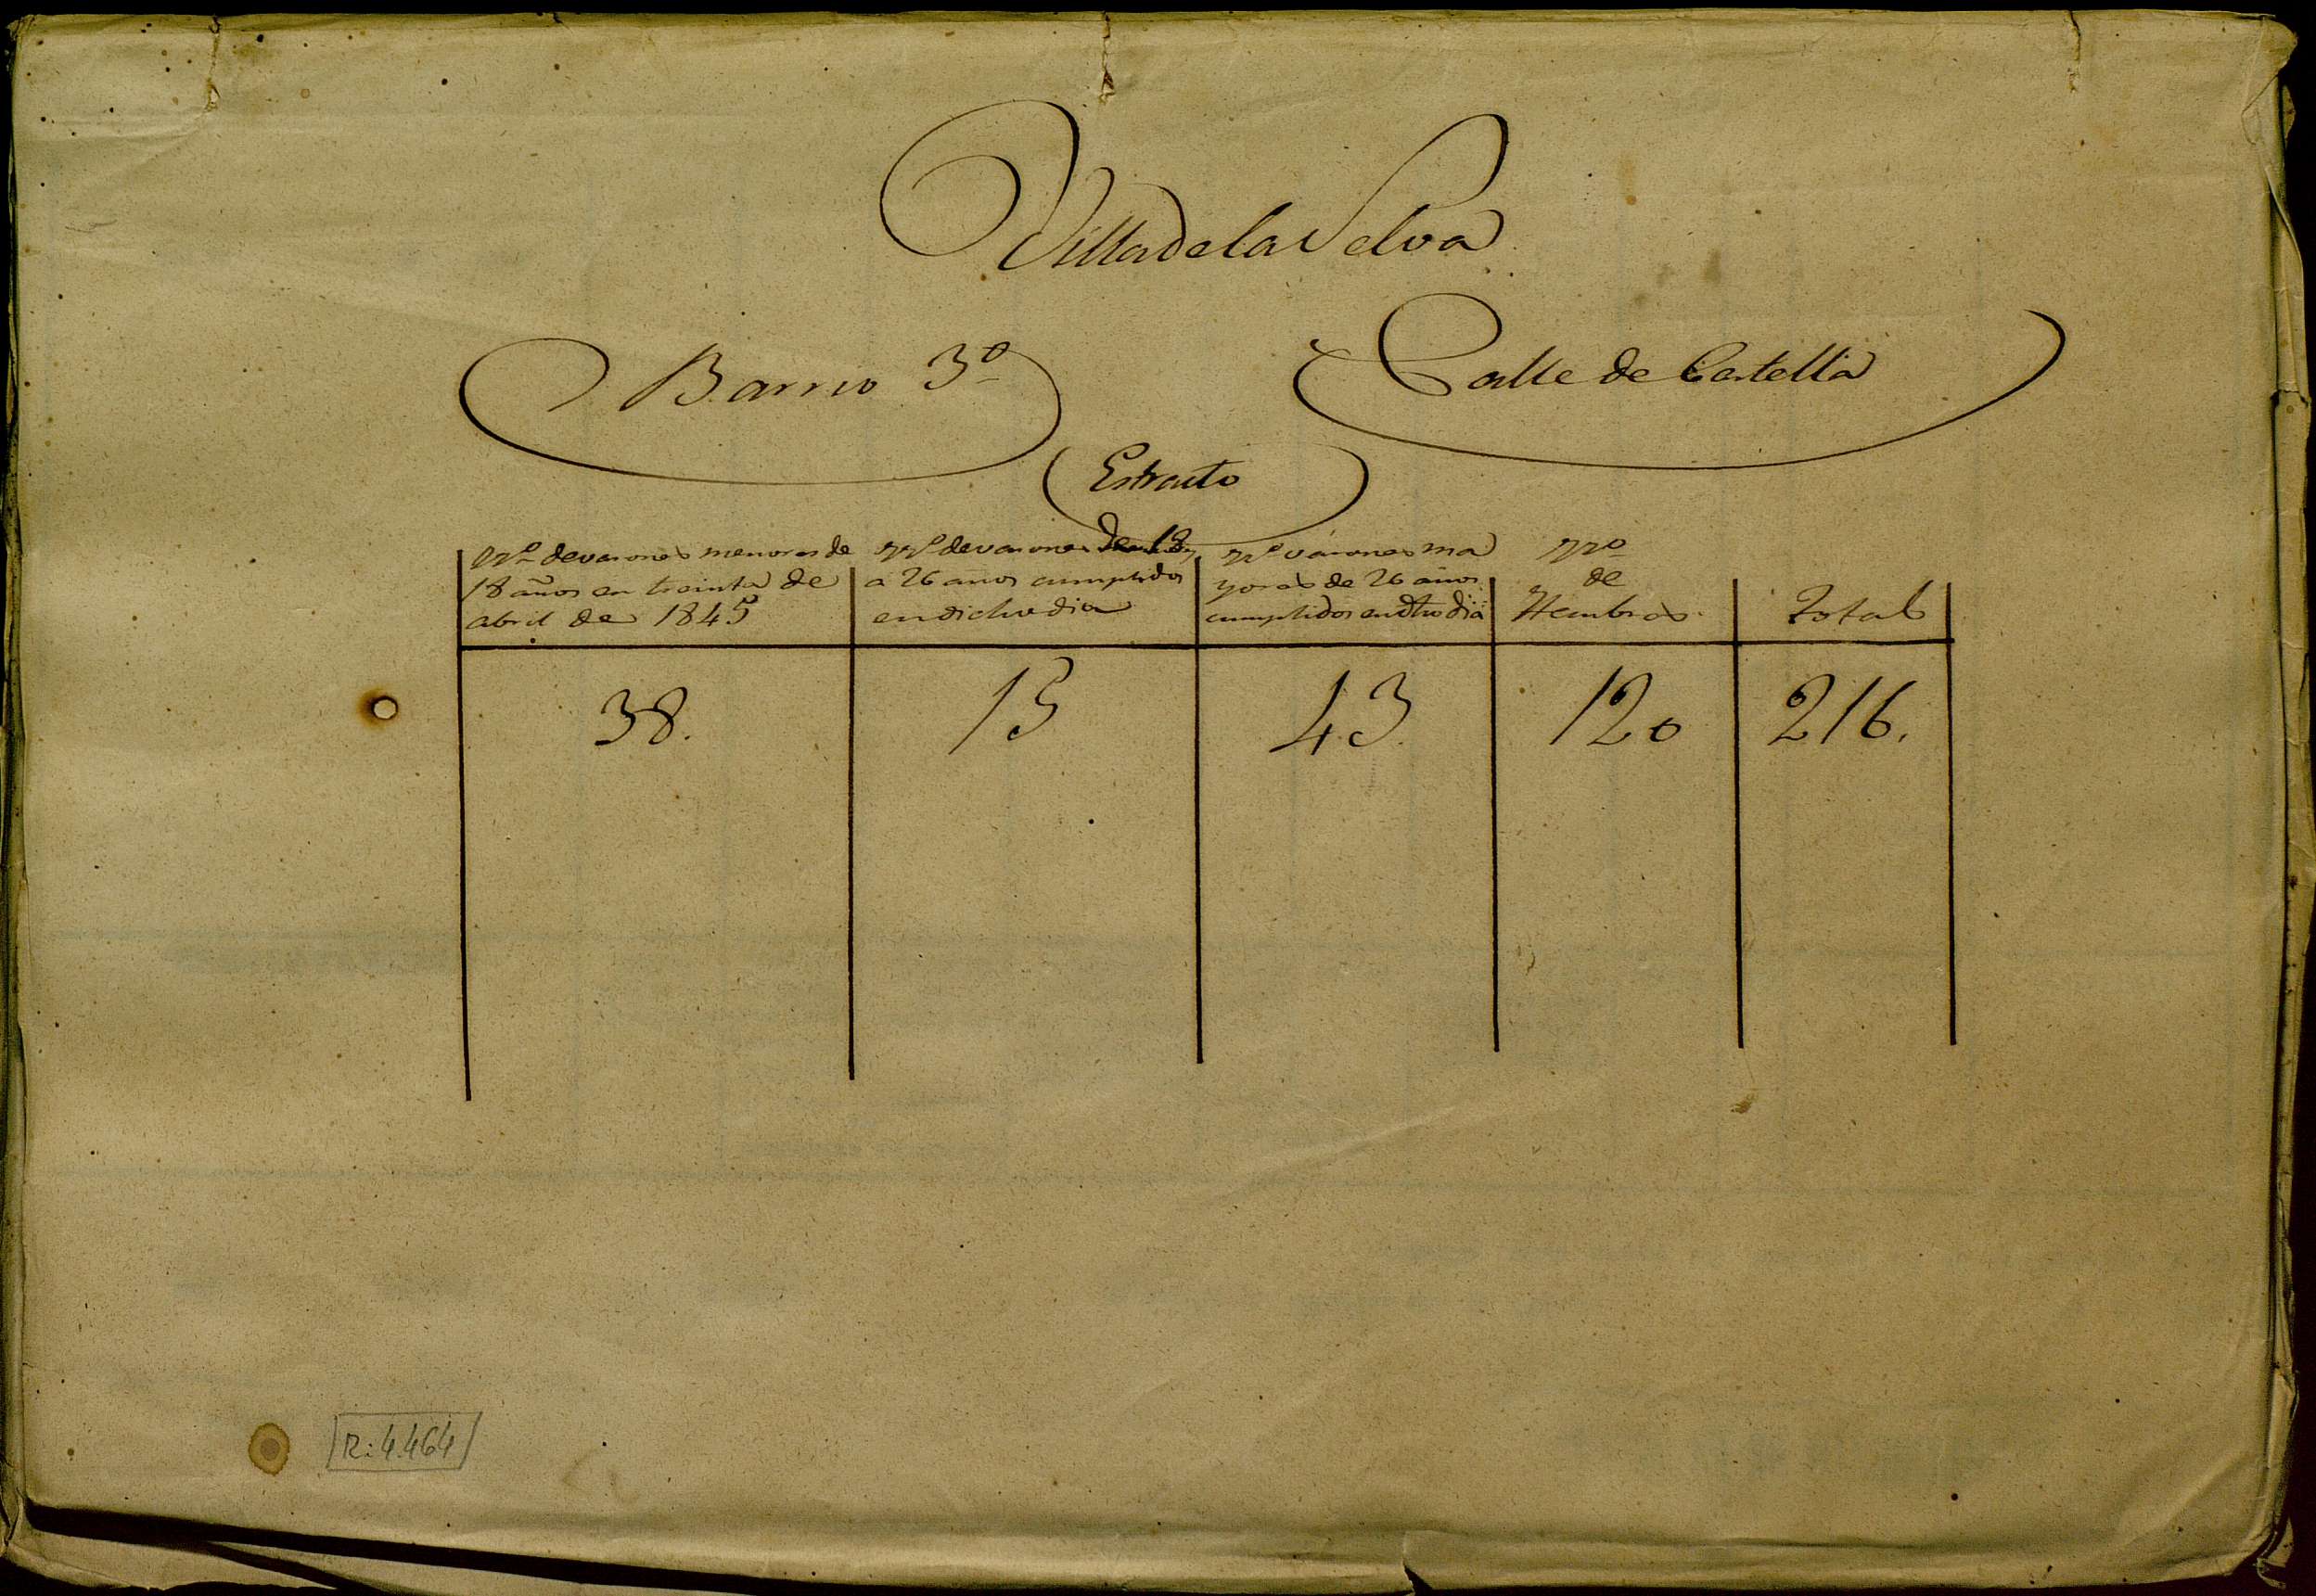 Villa de la Selva
Barrio 3º
Calle de Castella
Estracto
Nº de varones menores de
18 años en treinta de
abril de 1845
Nº de varones de 18
a 26 años cumplidos
en dicho dia
Nº varones ma
yores de 26 años
cumplidos en dho dia
Nº
de
Hembras
Total
38.
15
43
120
216.
R: 4.464